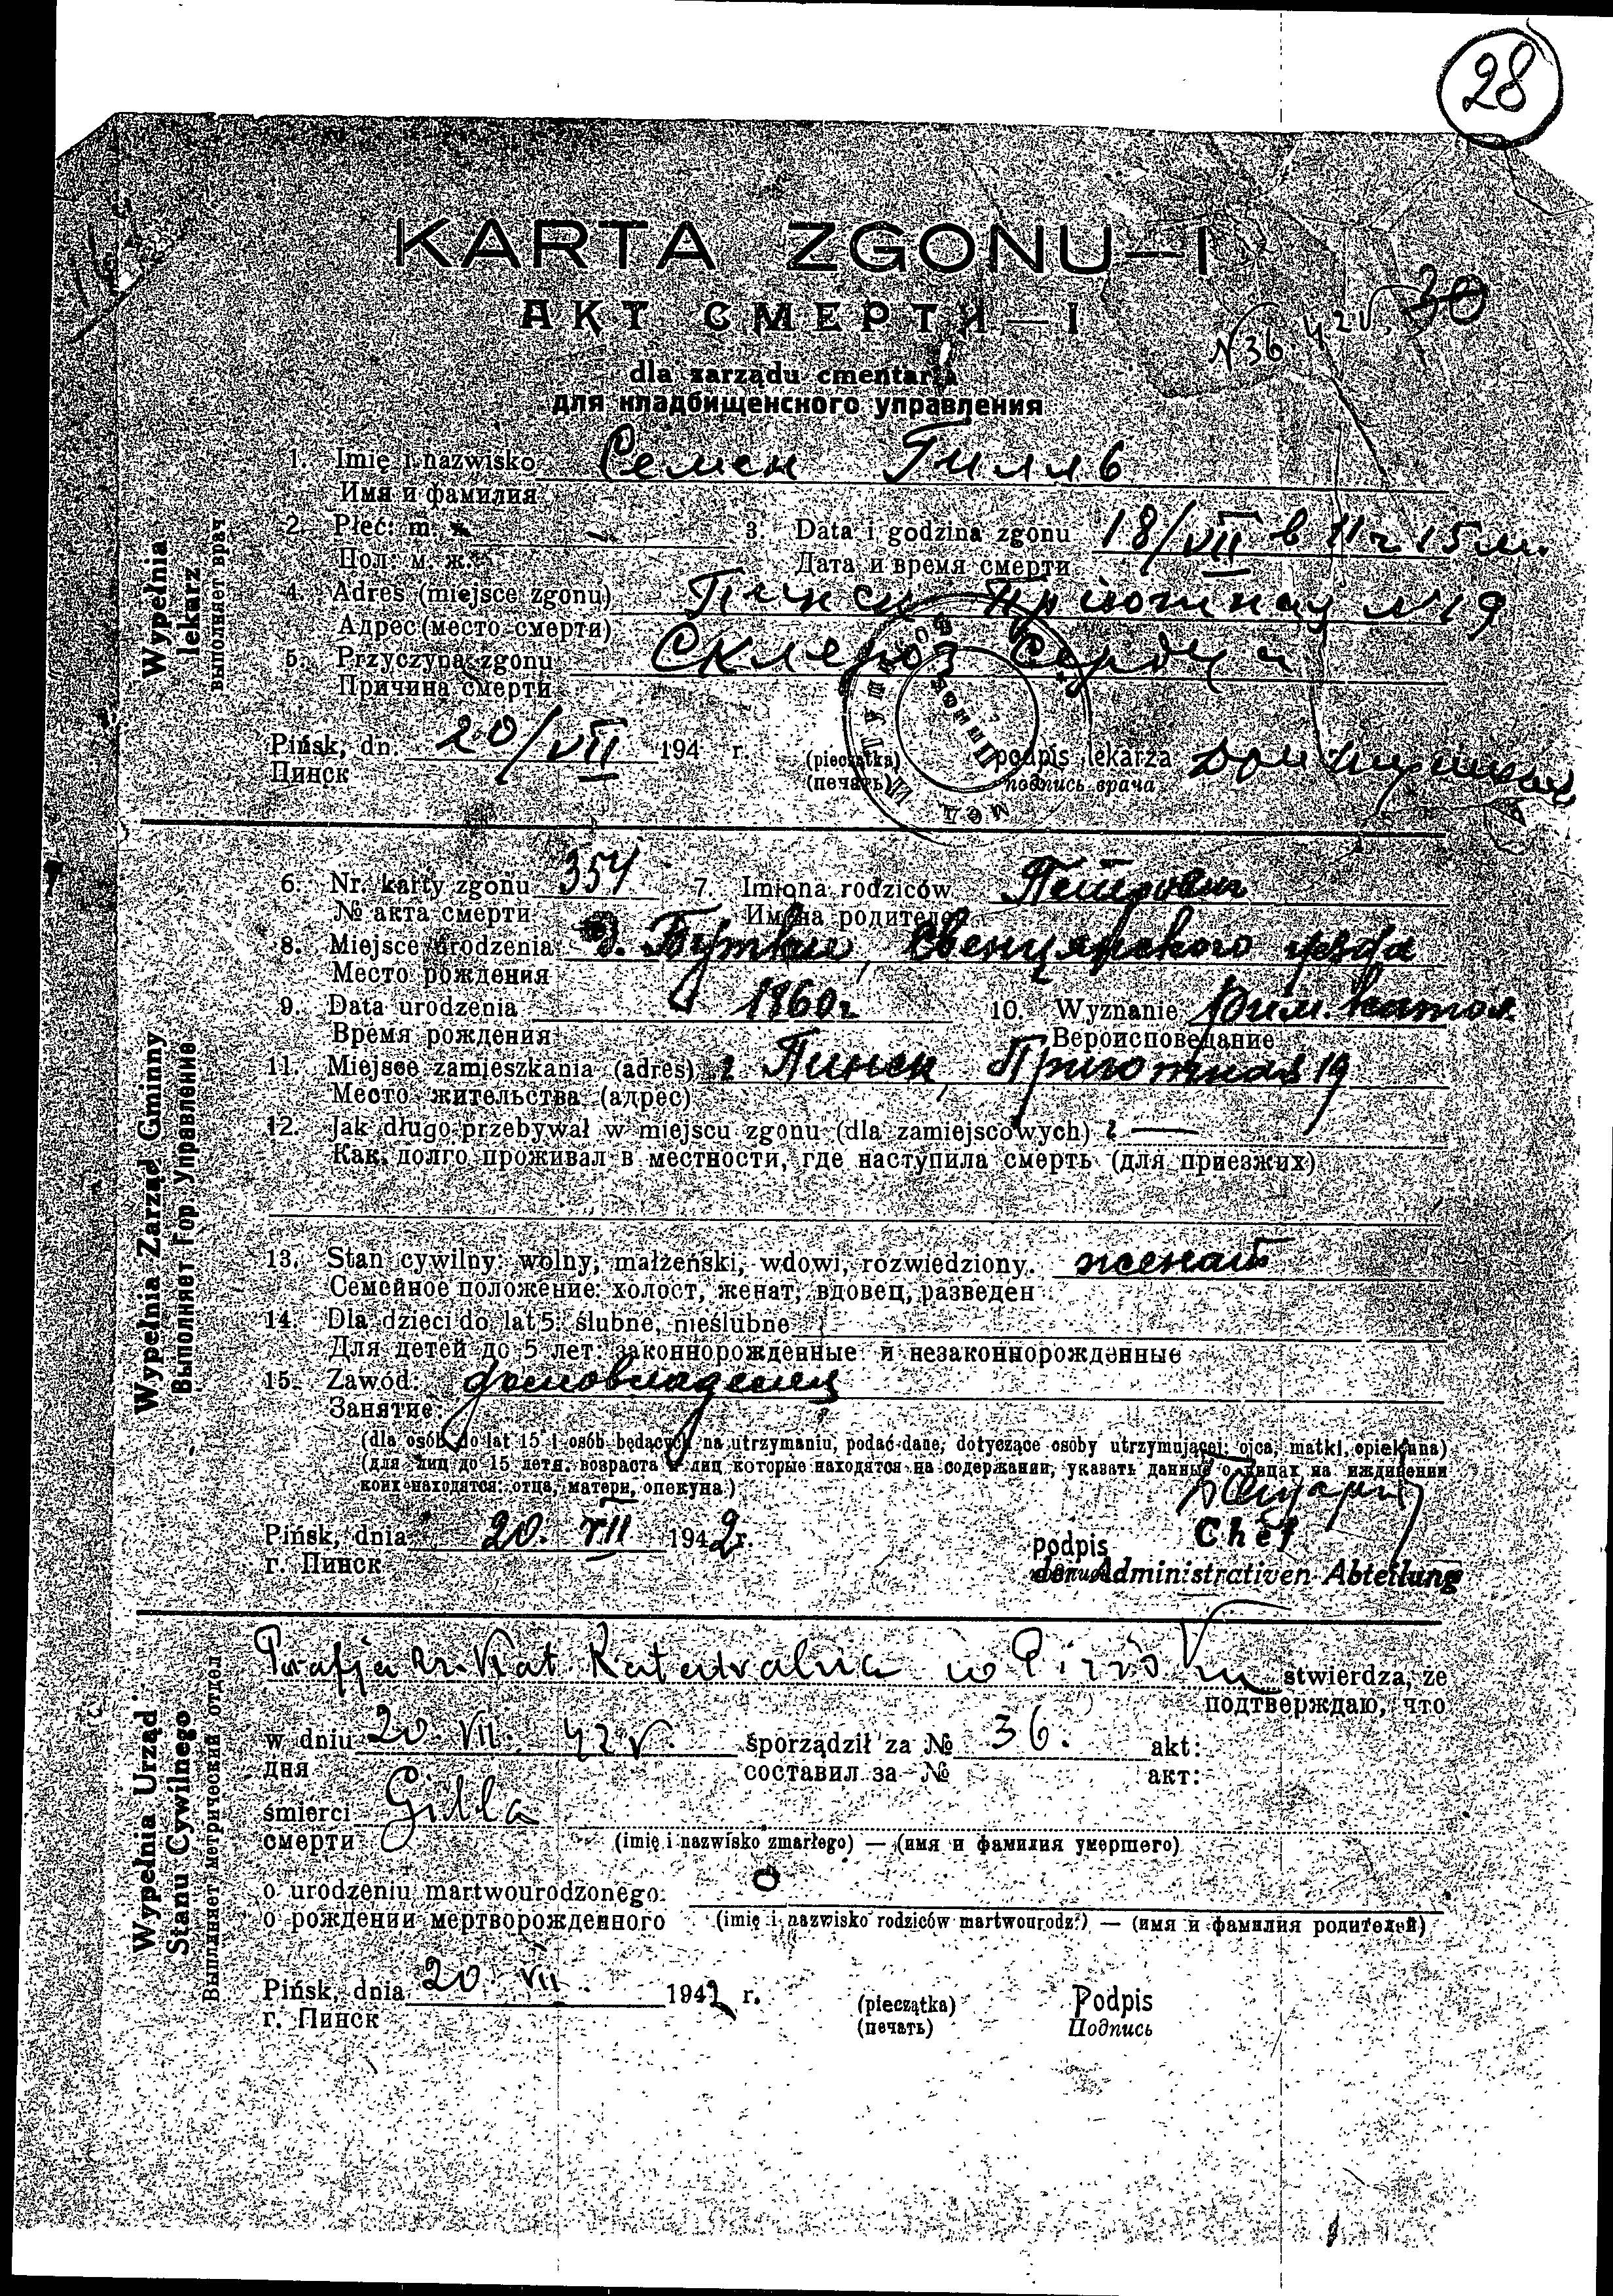 28
KARTA ZGONU—I
АКТ СМЕРТИ—I
N 36. 42 r. 30
dla zarządu cmentarza
для кладбищенского управления
1. Imię i nazwisko Семен Гилль
Имя и фамилия
2. Płeć: m. ż. 3. Data i godzina zgonu 18/VII в 11 ч 15 м.
Пол: м. ж. Дата и время смерти
4. Adres (miejsce zgonu) Пинск, №19
Адрес (место смерти)
5. Przyczyna zgonu Склероз Сердца
Причина смерти
Wypełnia lekarz
выполняет врач
Pińsk, dn. 20/VII 194 r. (pieczątka) podpis lekarza
Пинск (печать) подпись врача
6. Nr. karty zgonu 354 7. Imiona rodziców Петрович
№ акта смерти Имена родителей
8. Miejsce urodzenia д. Свенцянского уезда
Место рождения
9. Data urodzenia 1860 г. 10. Wyznanie Рим. катол.
Время рождения Вероисповедание
11. Miejsce zamieszkania (adres) г. Пинск, 19
Место жительства (адрес)
12. Jak długo przebywał w miejscu zgonu (dla zamiejscowych) —
Как долго проживал в местности, где наступила смерть (для приезжих)
13. Stan cywilny: wolny, małżeński, wdowi, rozwiedziony. женат
Семейное положение: холост, женат, вдовец, разведен
14. Dla dzieci do lat 5: ślubne, nieślubne
Для детей до 5 лет: законнорожденные и незаконнорожденные
15. Zawód: домовладелец
Занятие:
(dla osób do lat 15 i osób będących na utrzymaniu, podać dane, dotyczące osoby utrzymującej: ojca, matki, opiekuna)
(для лиц до 15 летн. возраста и лиц которые находятся на содержании, указать данные о лицах на иждивении
коих находятся: отца, матери, опекуна)
Wypełnia Zarząd Gminny
Выполняет Гор. Управление
Pińsk, dnia 20. VII 1942 r. podpis Chef
г. Пинск der Administrativen Abteilung
Parafja Rz.-Kat. Katedralna w Pińsku stwierdza, że
подтверждаю, что
w dniu 20 VII. 42 r. sporządził za № 36. akt:
дня составил за № акт:
śmierci Gilla
смерти (imię i nazwisko zmarłego) — (имя и фамилия умершего)
o urodzeniu martwourodzonego:
о рождении мертворожденного (imię i nazwisko rodziców martwourodz.) — (имя и фамилия родителей)
Wypełnia Urząd Stanu Cywilnego
Выплняет метрический отдел
Pińsk, dnia 20. VII. 1942 r. (pieczątka) Podpis
г. Пинск (печать) Подпись